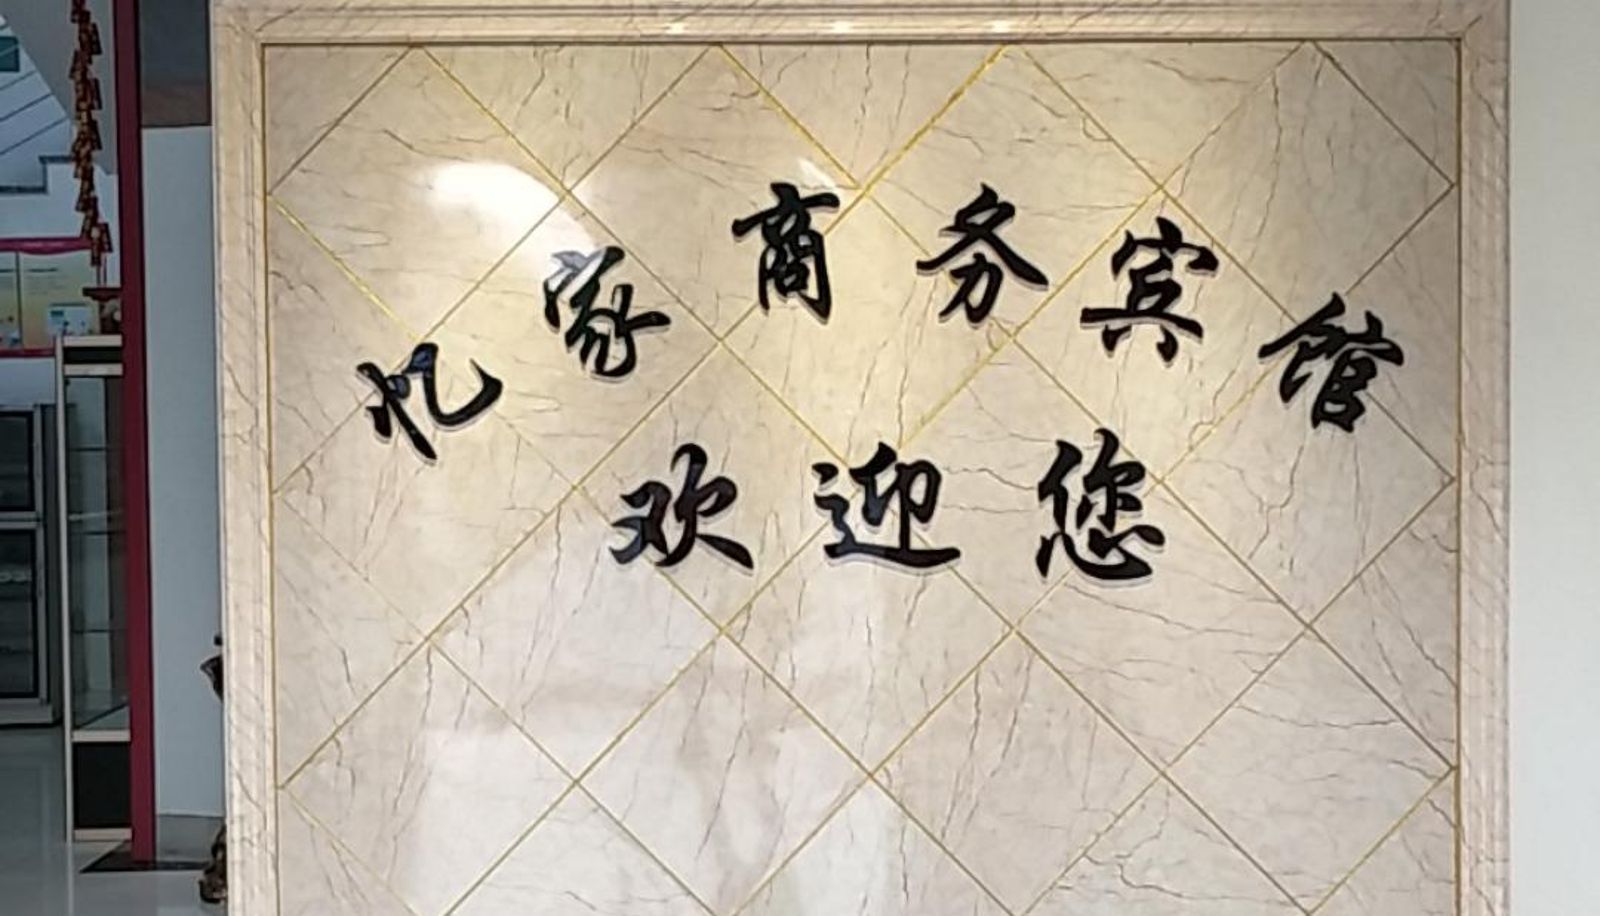 忆家商务宾馆
欢迎您